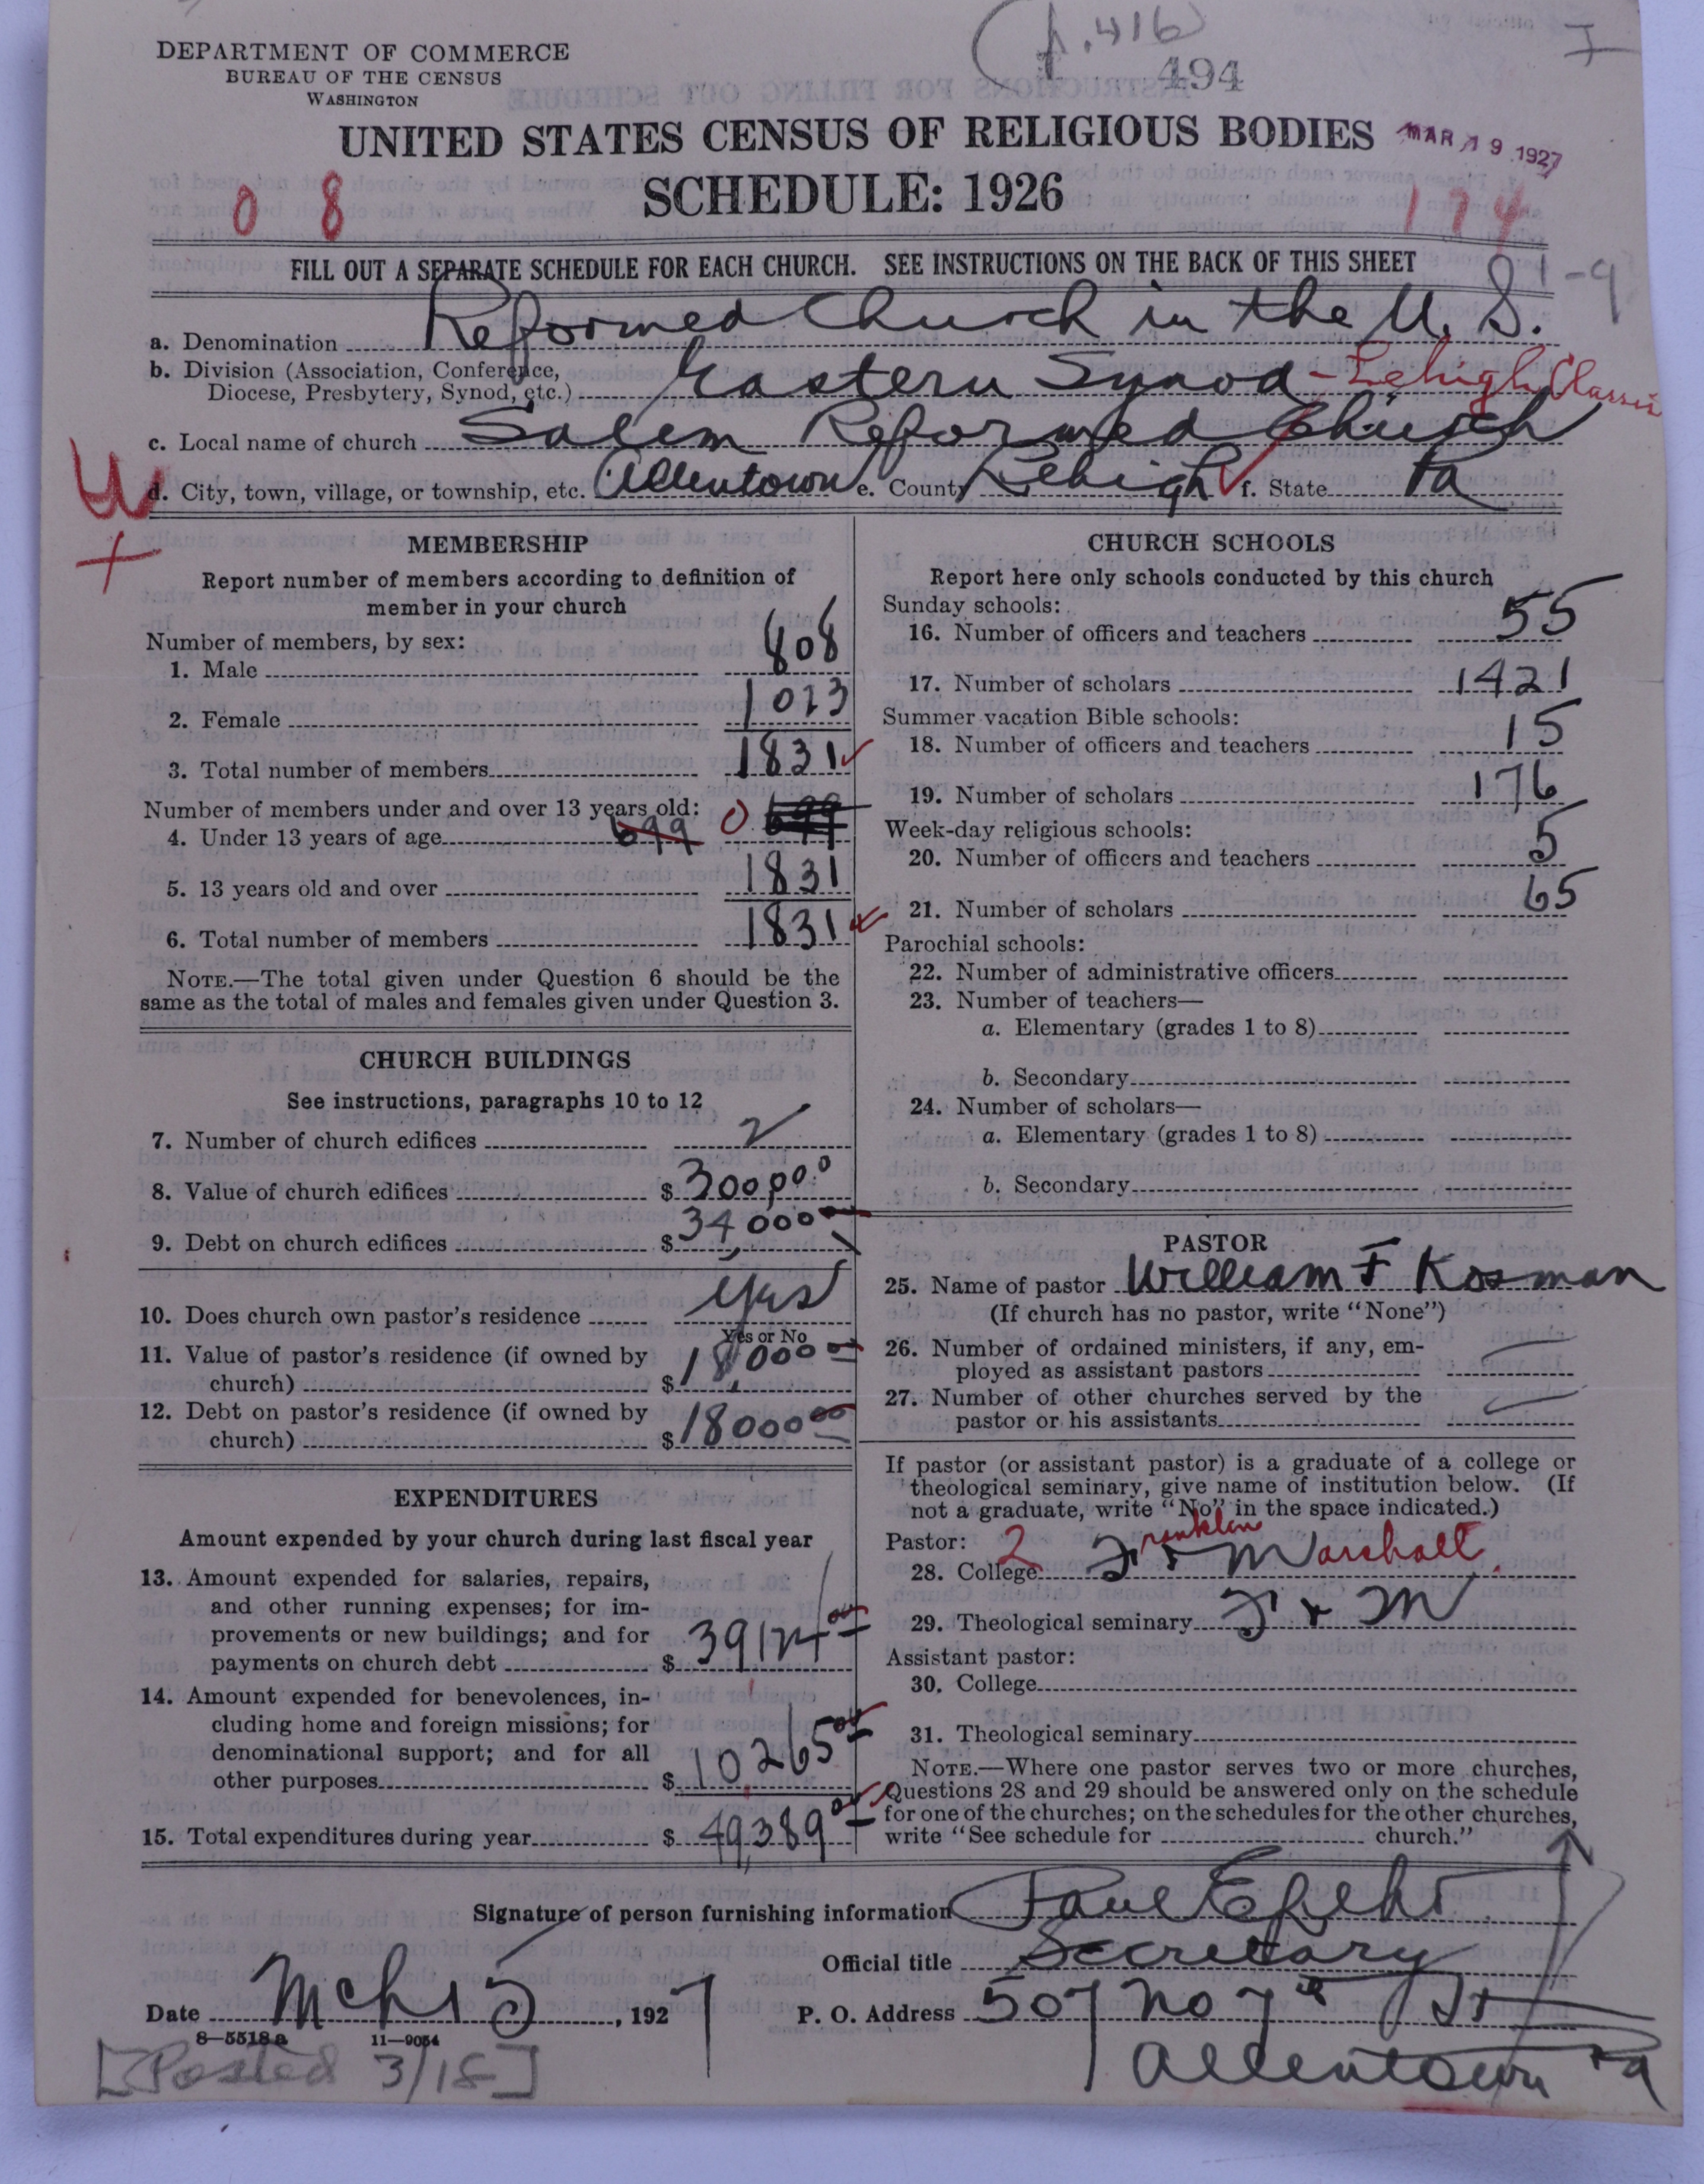 (p.416)
I
494
DEPARTMENT OF COMMERCE
BUREAU OF THE CENSUS
WASHINGTON
UNITED STATES CENSUS OF RELIGIOUS BODIES
MAR 19 1927
SCHEDULE: 1926
0 8
174
FILL OUT A SEPARATE SCHEDULE FOR EACH CHURCH. SEE INSTRUCTIONS ON THE BACK OF THIS SHEET
81-9
a. Denomination Reformed Church in the U. S.
b. Division (Association, Conference,
Diocese, Presbytery, Synod, etc.) Eastern Synod - Lehigh Classis
c. Local name of church Salem Reformed Church
d. City, town, village, or township, etc. Allentown e. County Lehigh f. State Pa
MEMBERSHIP
Report number of members according to definition of
member in your church
Number of members, by sex:
1. Male 808
2. Female 1023
3. Total number of members 1831
Number of members under and over 13 years old:
4. Under 13 years of age 699 0 699
5. 13 years old and over 1831
6. Total number of members 1831
NOTE.—The total given under Question 6 should be the
same as the total of males and females given under Question 3.
CHURCH BUILDINGS
See instructions, paragraphs 10 to 12
7. Number of church edifices 2
8. Value of church edifices $ 300,000
9. Debt on church edifices $ 34,000
10. Does church own pastor's residence yes
Yes or No
11. Value of pastor's residence (if owned by
church) $ 18,000 00
12. Debt on pastor's residence (if owned by
church) $ 18000 00
EXPENDITURES
Amount expended by your church during last fiscal year
13. Amount expended for salaries, repairs,
and other running expenses; for im-
provements or new buildings; and for
payments on church debt $ 39124 00
14. Amount expended for benevolences, in-
cluding home and foreign missions; for
denominational support; and for all
other purposes $ 10,265 00
15. Total expenditures during year $ 49,389 00
CHURCH SCHOOLS
Report here only schools conducted by this church
Sunday schools:
16. Number of officers and teachers 55
17. Number of scholars 1421
Summer vacation Bible schools:
18. Number of officers and teachers 15
19. Number of scholars 176
Week-day religious schools:
20. Number of officers and teachers 5
21. Number of scholars 65
Parochial schools:
22. Number of administrative officers
23. Number of teachers—
a. Elementary (grades 1 to 8)
b. Secondary
24. Number of scholars—
a. Elementary (grades 1 to 8)
b. Secondary
PASTOR
25. Name of pastor William F Kosman
(If church has no pastor, write "None")
26. Number of ordained ministers, if any, em-
ployed as assistant pastors
27. Number of other churches served by the
pastor or his assistants
If pastor (or assistant pastor) is a graduate of a college or
theological seminary, give name of institution below. (If
not a graduate, write "No" in the space indicated.)
Pastor:
28. College 2 Franklin + Marshall
29. Theological seminary F + M
Assistant pastor:
30. College
31. Theological seminary
NOTE.—Where one pastor serves two or more churches,
Questions 28 and 29 should be answered only on the schedule
for one of the churches; on the schedules for the other churches,
write "See schedule for church."
Signature of person furnishing information Paul E
Official title Secretary
Date Mch 15, 1927 P. O. Address 507 No 7th St
8—5518a 11—9054
Allentown Pa
[Posted 3/18]